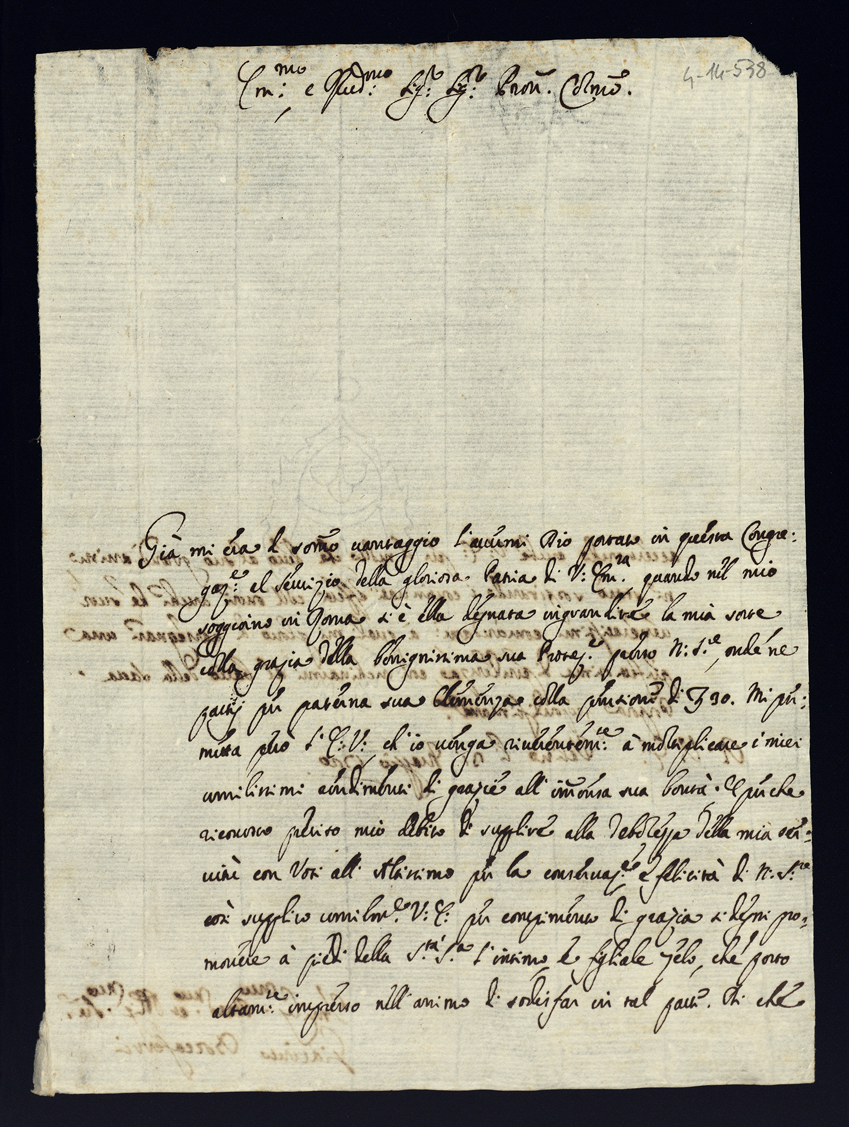 4-14-538
Em:mo e Rued:mo Sig:r Sig:r Pron. Colmo.
Già mi era di somo uantaggio l'auermi Dio portato in questa Congre:
gaz:e al seruizio della gloriosa Patria di V: Em:za quando nel mio
soggiorno in Roma si è ella degnata ingrandire la mia sorte
colla grazia della benignissima sua Protez:e presso N: S:re, onde ne
per paterna sua Clemenza colla pensione di 30. Mi per:
metta però l'E: V:, ch'io uenga riuerentem:te à moltiplicare i miei
umilissimi rendimenti di grazie all'immensa sua bontà. E perche
riconosco preciso mio debito di supplire alla debolezza della mia ser:
uitù con Voti all'Altissimo per la conseruaz:e e felicità di N: S:re
così supplico umilm:e V: E: per compimento di grazia si degni pro:
mouere à piedi della S:tà S:a l'intimo, e figliale zelo, che porto
altam:te impresso nell'animo di sodisfar in tal Di che